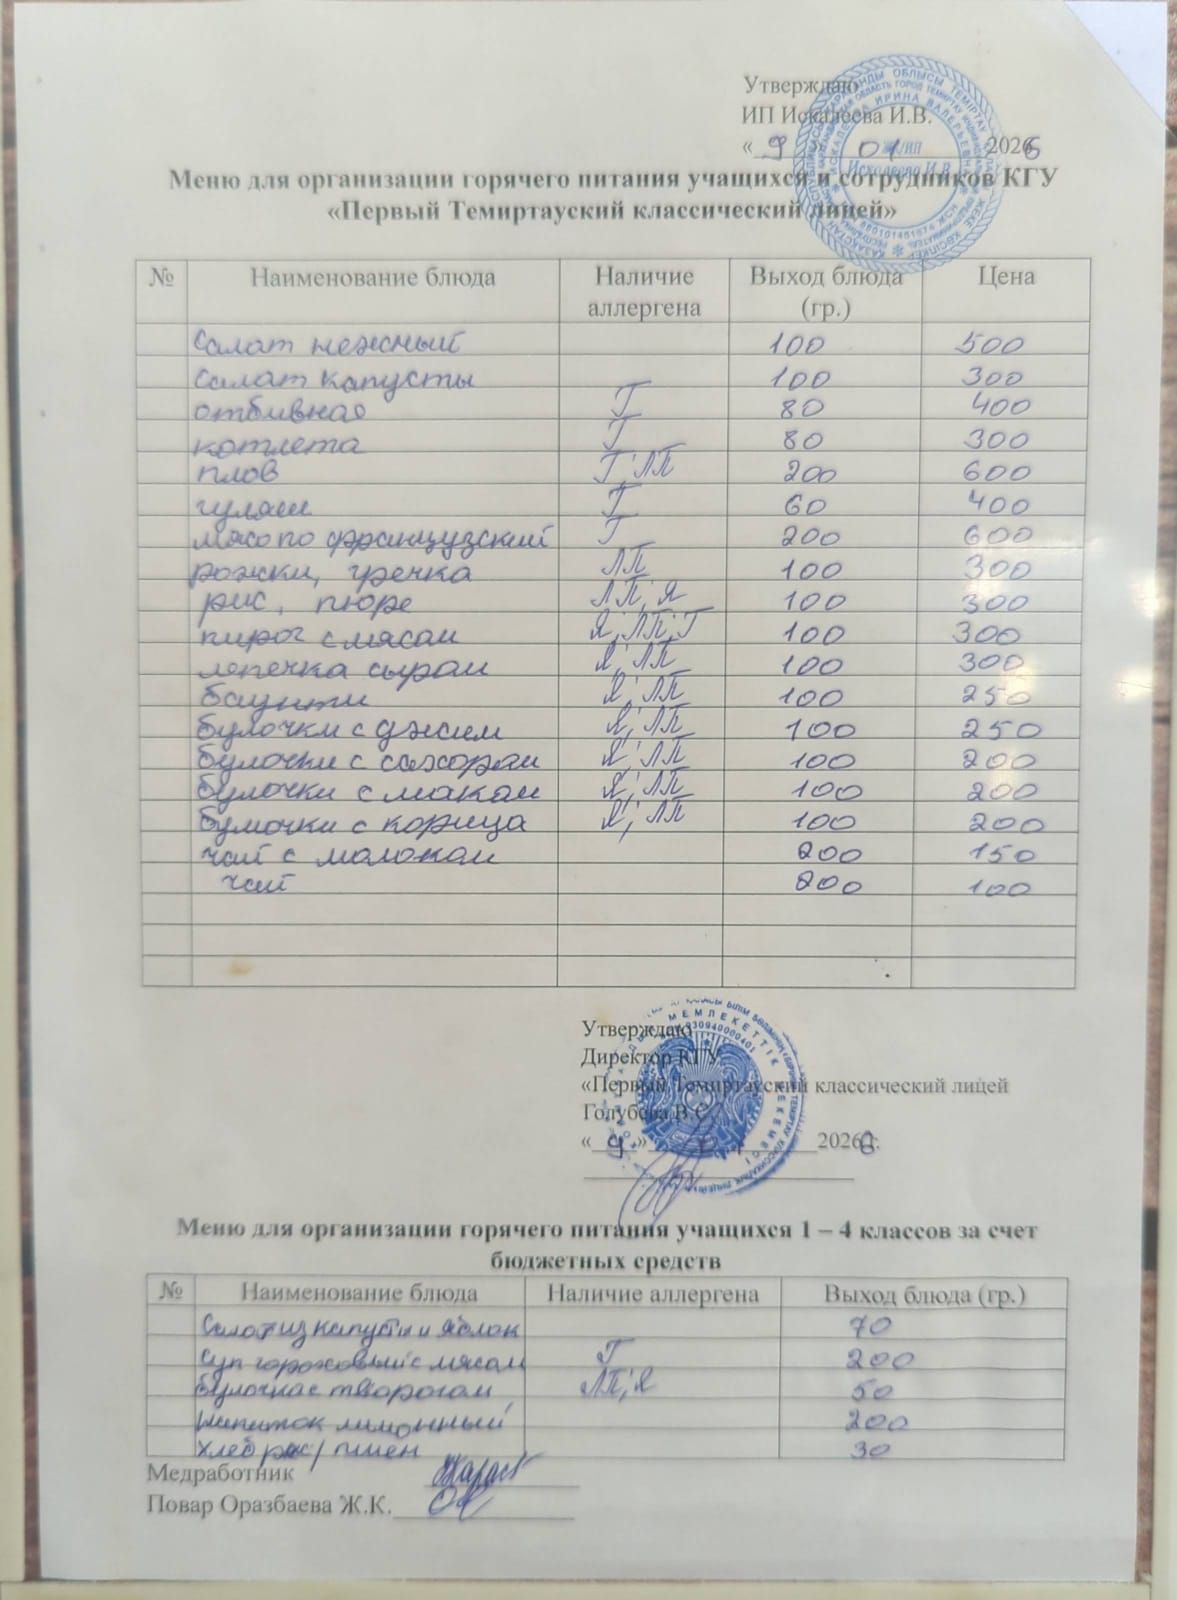 Утверждаю
ИП Искалеева И.В.
« 9 » 01 2026
Меню для организации горячего питания учащихся и сотрудников КГУ
«Первый Темиртауский классический лицей»
№ Наименование блюда Наличие аллергена Выход блюда (гр.) Цена
Салат нежный 100 500
Салат капусты 100 300
отбивная Г 80 400
котлета Г 80 300
плов Г; ЛП 200 600
гуляш Г 60 400
мясо по французский Г 200 600
рожки, гречка ЛП 100 300
рис, пюре ЛП; Я 100 300
пирог с мясом Я; ЛП; Г 100 300
лепечка сыром Я; ЛП 100 300
баунти Я; ЛП 100 250
булочки с джем Я; ЛП 100 250
булочки с сахором Я; ЛП 100 200
булочки с маком Я; ЛП 100 200
булочки с корица Я; ЛП 100 200
чай с молоком 200 150
чай 200 100
Утверждаю
Директор КГУ
«Первый Темиртауский классический лицей
Голубева В.С.
« 9 » 2026 г.
Меню для организации горячего питания учащихся 1 – 4 классов за счет
бюджетных средств
№ Наименование блюда Наличие аллергена Выход блюда (гр.)
Салат из капусти и яблок 70
Суп гороховый с мясом Г 200
булочка с творогом ЛП; Я 50
напиток лимонный 200
хлеб рж/пшен 30
Медработник
Повар Оразбаева Ж.К.